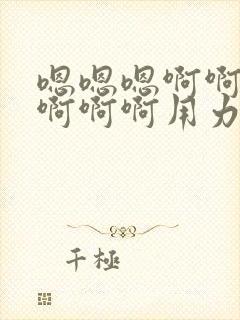 嗯嗯嗯啊啊
啊啊啊用力
千極